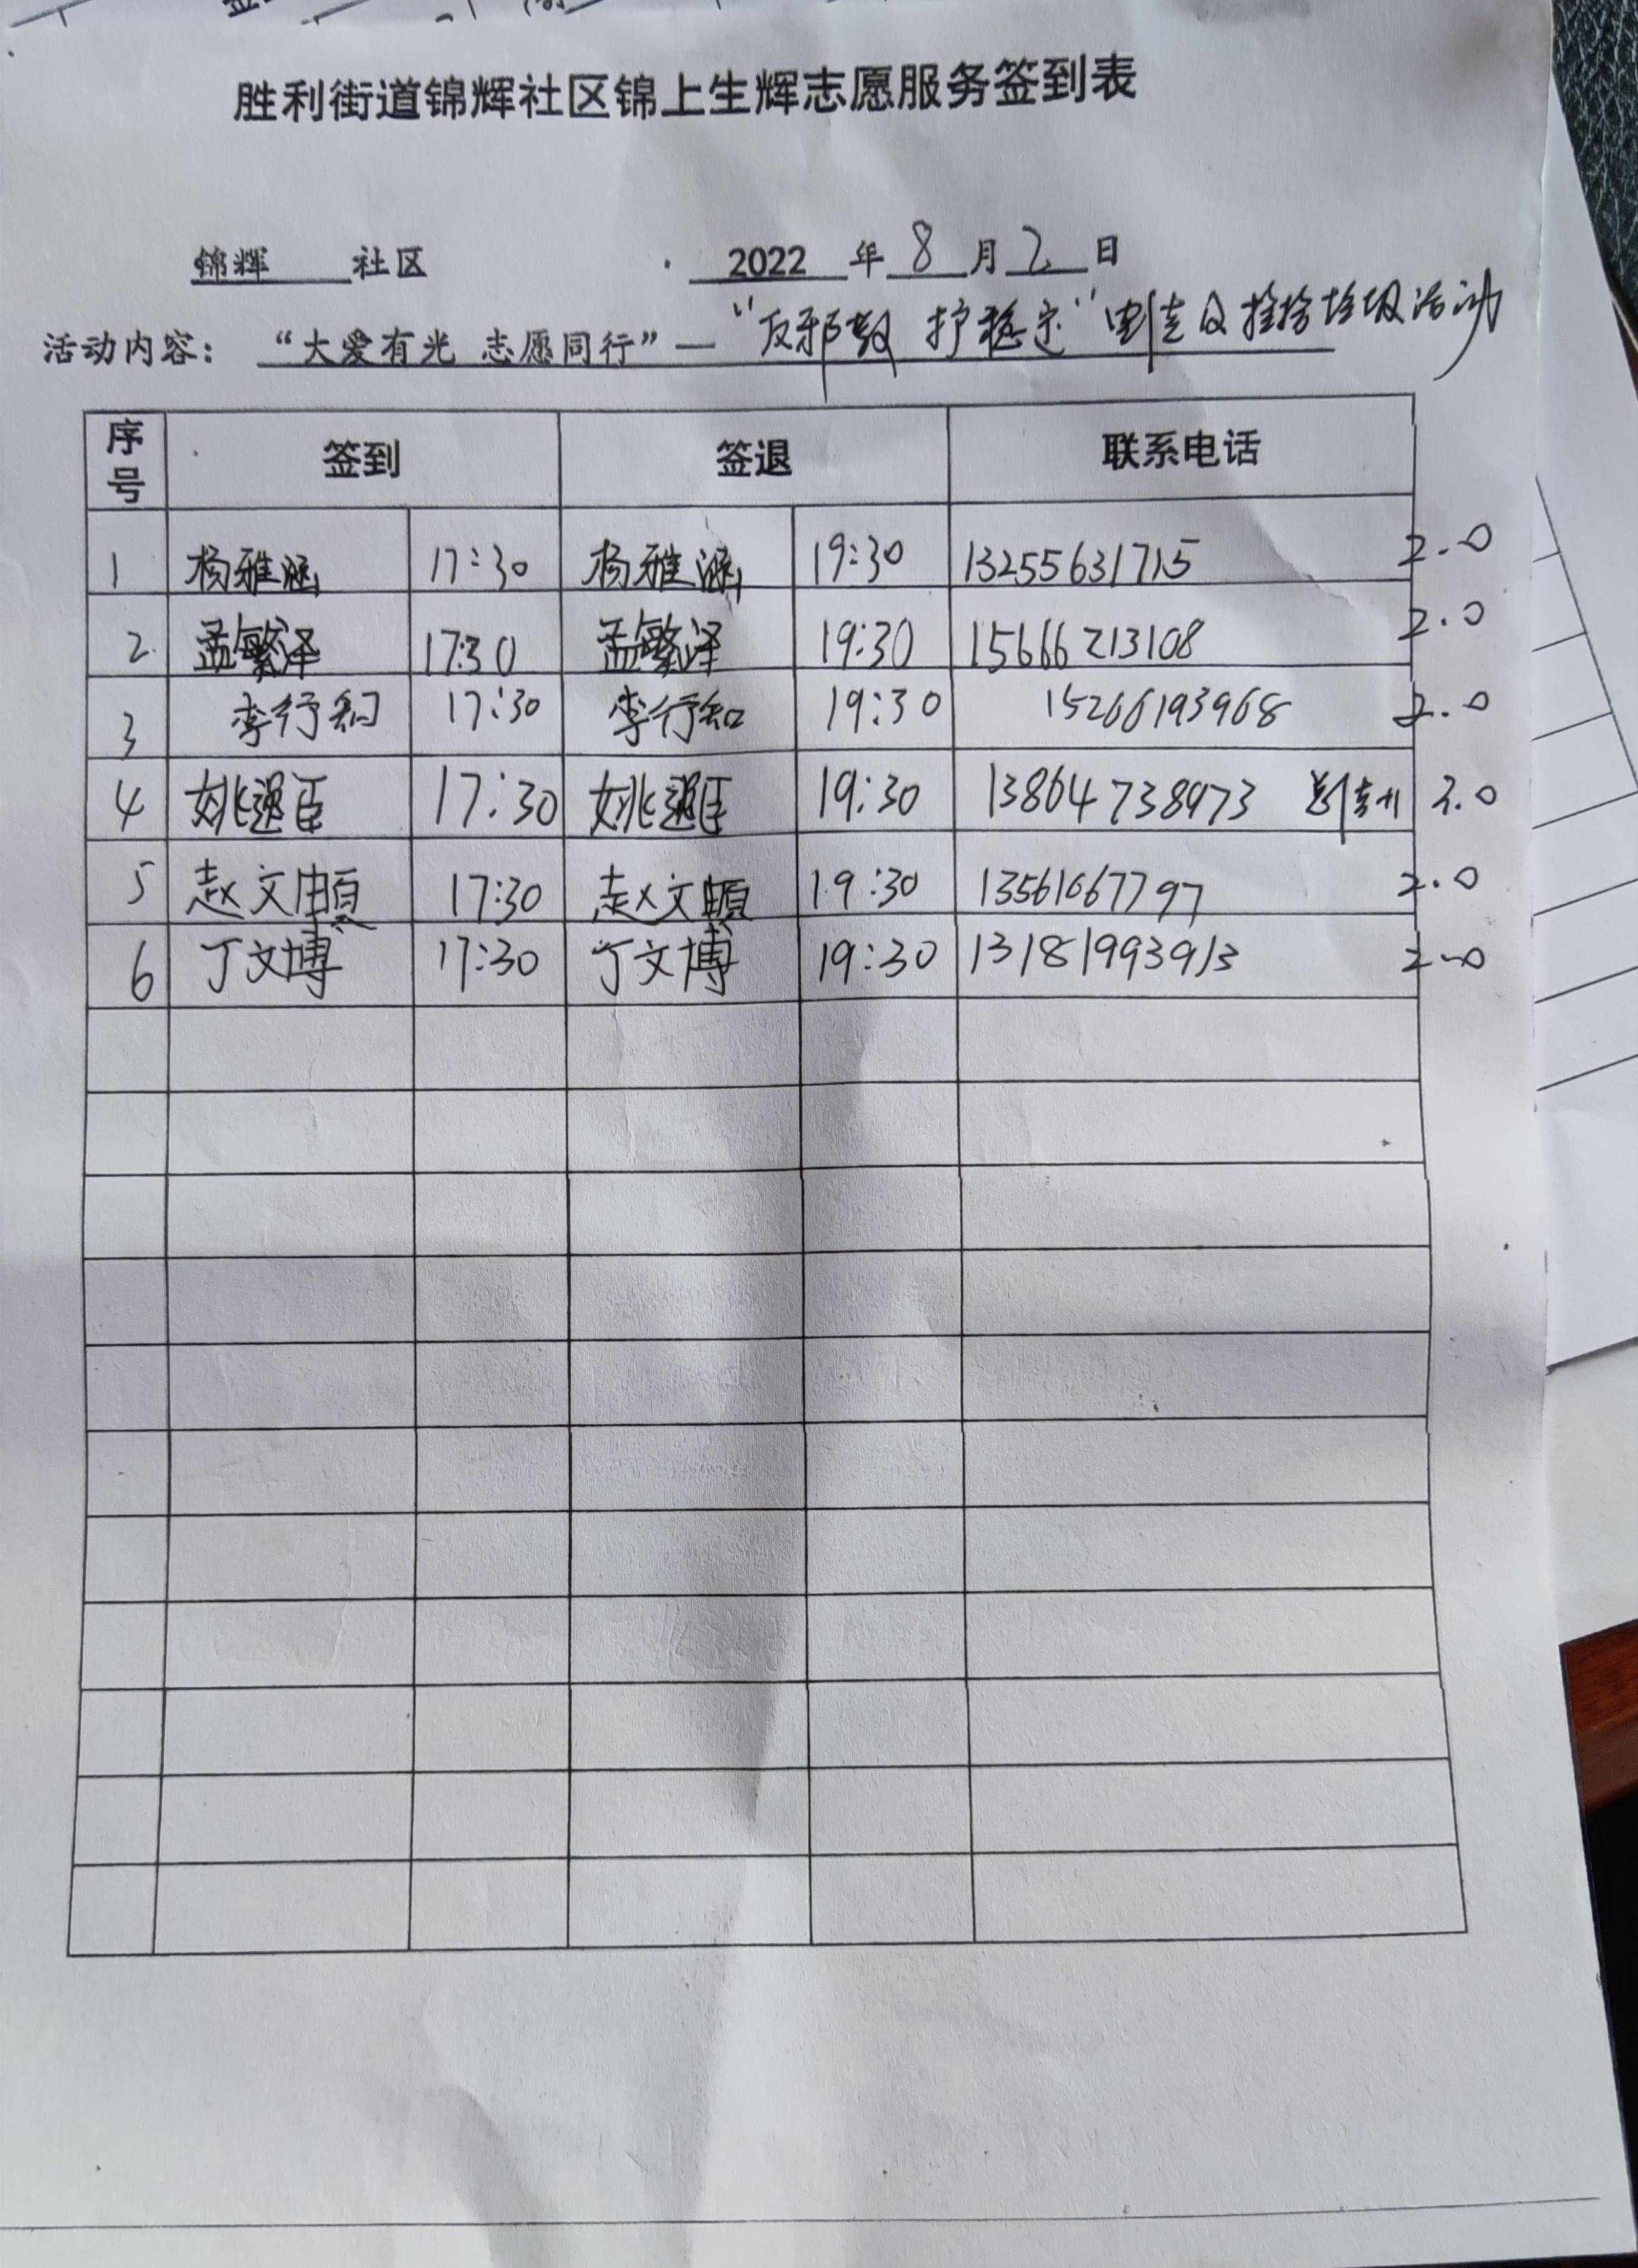 胜利街道锦辉社区锦上生辉志愿服务签到表
锦辉 社区 2022 年 8 月 2 日
活动内容: “大爱有光 志愿同行”— “反邪教 护稳定” 及捡拾垃圾活动
序号 签到 签退 联系电话
1 杨雅涵 17:30 杨雅涵 19:30 13255631715 2.0
2. 孟繁泽 17:30 孟繁泽 19:30 15666213108 2.0
3 李行知 17:30 李行知 19:30 15266193968 2.0
4 姚逞臣 17:30 姚逞臣 19:30 13864738973 2.0
5 赵文 17:30 赵文 19:30 13561067797 2.0
6 丁文博 17:30 丁文博 19:30 13181993913 2.0